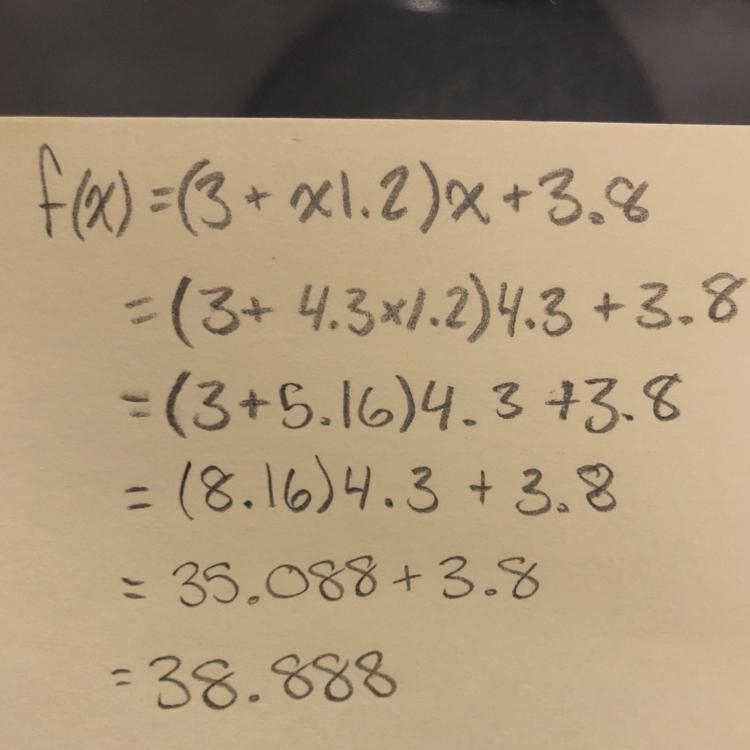 f(x)=(3+ x1.2)x+3.8
=(3+ 4.3x1.2)4.3 +3.8
=(3+5.16)4.3 +3.8
= (8.16)4.3 + 3.8
= 35.088+3.8
=38.888